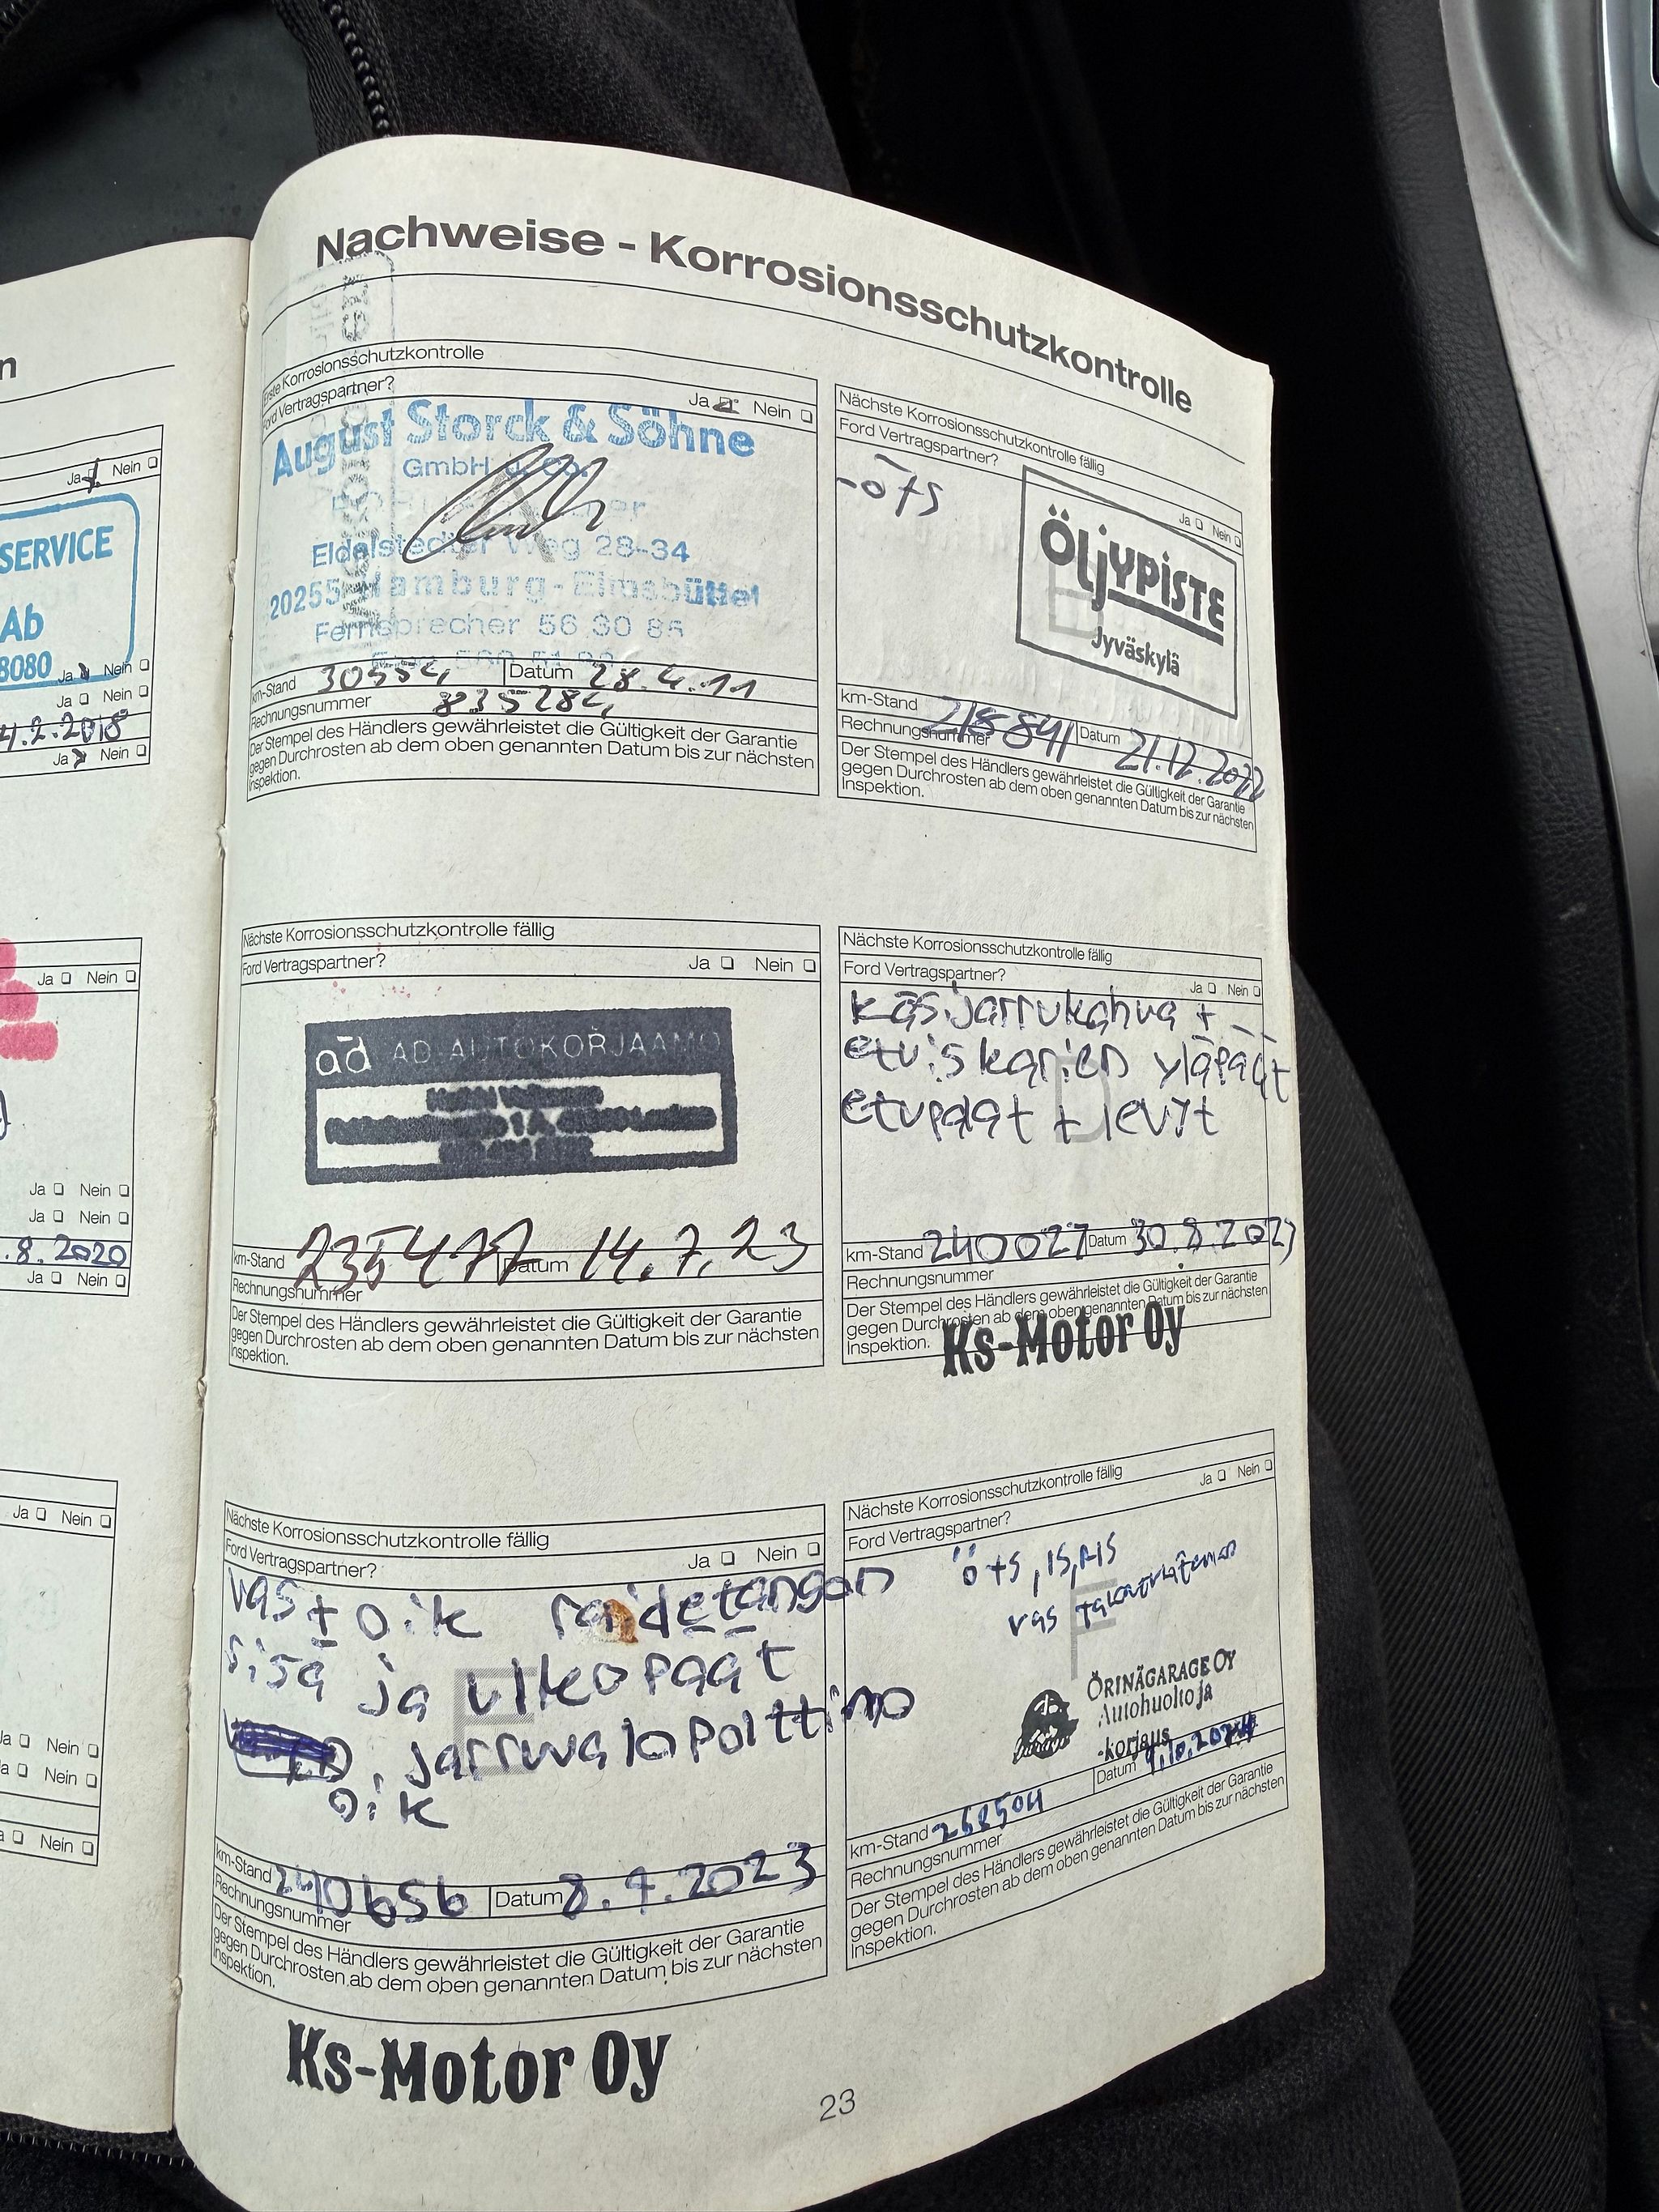 n
Ja Nein
SERVICE
Ab
8080
Ja Nein
Ja Nein
4.2.2018
Ja Nein
Ja Nein
Ja Nein
Ja Nein
.8.2020
Ja Nein
Ja Nein
Ja Nein
Ja Nein
Nein
Nachweise - Korrosionsschutzkontrolle
Erste Korrosionsschutzkontrolle
Ford Vertragspartner? Ja Nein
August Storck & Söhne
GmbH u. Co.
Eidelstedter Weg 28-34
20255 Hamburg-Eimsbüttel
Fernsprecher 56 30 85
km-Stand 30554 Datum 28.4.11
Rechnungsnummer 835284
Der Stempel des Händlers gewährleistet die Gültigkeit der Garantie
gegen Durchrosten ab dem oben genannten Datum bis zur nächsten
Inspektion.
Nächste Korrosionsschutzkontrolle fällig
Ford Vertragspartner? Ja Nein
-öTS
ÖljYPiSTE
Jyväskylä
km-Stand 218841 Datum 21.12.2022
Rechnungsnummer
Der Stempel des Händlers gewährleistet die Gültigkeit der Garantie
gegen Durchrosten ab dem oben genannten Datum bis zur nächsten
Inspektion.
Nächste Korrosionsschutzkontrolle fällig
Ford Vertragspartner? Ja Nein
ad AD AUTOKORJAAMO
km-Stand 235477 Datum 14.7.23
Rechnungsnummer
Der Stempel des Händlers gewährleistet die Gültigkeit der Garantie
gegen Durchrosten ab dem oben genannten Datum bis zur nächsten
Inspektion.
Nächste Korrosionsschutzkontrolle fällig
Ford Vertragspartner? Ja Nein
käsijarrukahva +
etuiskarien yläpäät
etupalat + levyt
D
km-Stand 240027 Datum 30.8.2023
Rechnungsnummer
Der Stempel des Händlers gewährleistet die Gültigkeit der Garantie
gegen Durchrosten ab dem oben genannten Datum bis zur nächsten
Inspektion.
Ks-Motor Oy
Nächste Korrosionsschutzkontrolle fällig
Ford Vertragspartner? Ja Nein
vas + oik raidetangon
sisä ja ulkopäät
jarruvalopolttimo
oik
E
km-Stand 240656 Datum 8.9.2023
Rechnungsnummer
Der Stempel des Händlers gewährleistet die Gültigkeit der Garantie
gegen Durchrosten ab dem oben genannten Datum bis zur nächsten
Inspektion.
Ks-Motor Oy
Nächste Korrosionsschutzkontrolle fällig
Ford Vertragspartner? Ja Nein
ö+s, is, RIS
vas
F
ÖRINÄGARAGE OY
Autohuolto ja
-korjaus
km-Stand 268504 Datum 9.10.2024
Rechnungsnummer
Der Stempel des Händlers gewährleistet die Gültigkeit der Garantie
gegen Durchrosten ab dem oben genannten Datum bis zur nächsten
Inspektion.
23